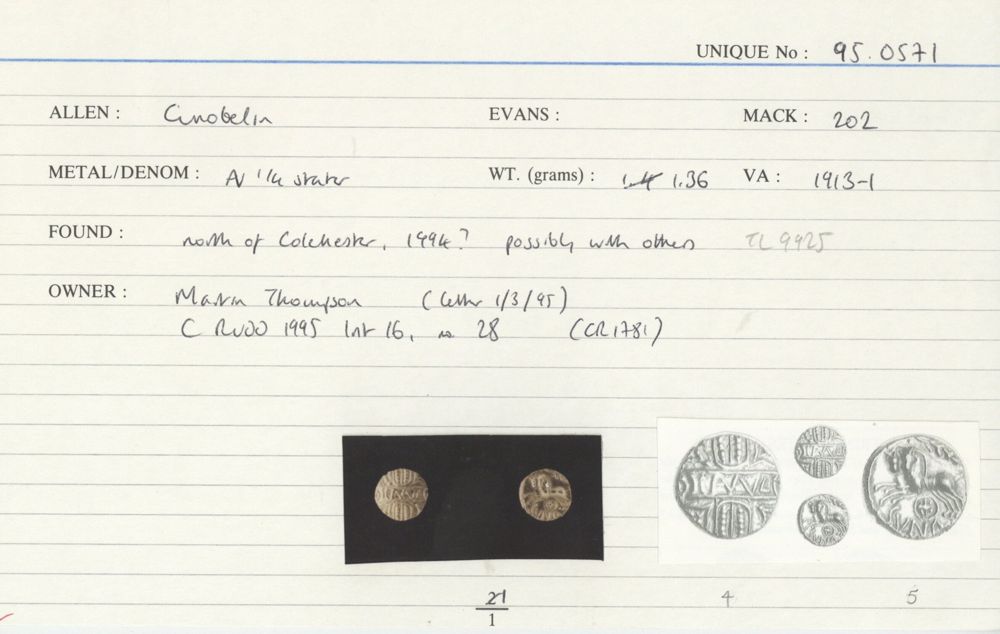 UNIQUE No : 95.0571
ALLEN : Cunobelin EVANS : MACK : 202
METAL/DENOM : AV 1/4 stater WT. (grams) : 1.36 VA : 1913-1
FOUND : north of Colchester, 1994? possibly with others TL 9925
OWNER : Martin Thompson (letter 1/3/95)
C RUDD 1995 list 16, no. 28 (CR1781)
21
1
4 5